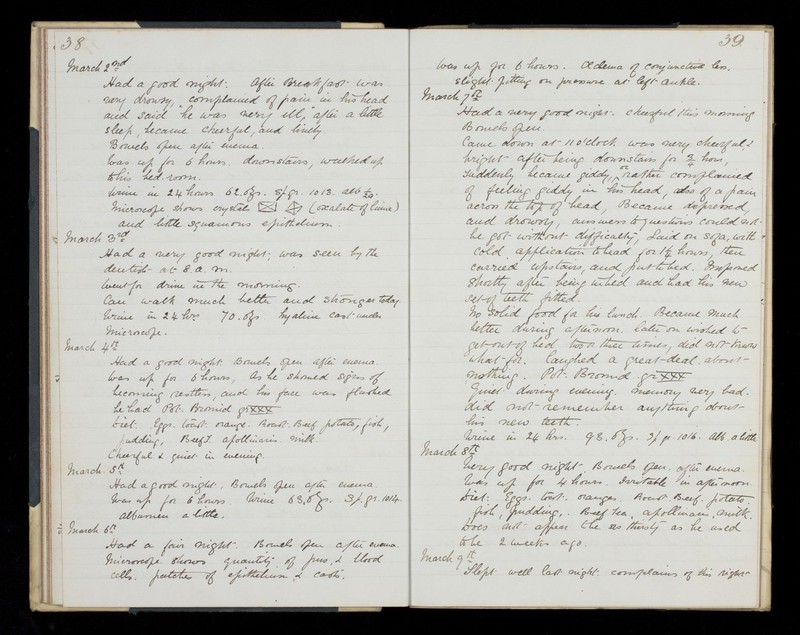 38
March 2nd
Had a good night. After Breakfast was
very drowsy, complained of pain in his head
and said he was very ill, after a little
sleep, became cheerful, and lively.
Bowels open after enema.
Was up for 6 hours. downstairs, walked up
to his bed-room.
Urine in 24 hours 62. ozs. Sp. gr. 1013. alb
Microscope shows crystals (oxalate of lime)
and little squamous epithelium.
March 3rd
Had a very good night; was seen by the
dentist at 8. a. m.
Went for drive in the morning.
Can walk much better and stronger today
Urine in 24 hrs 70. ozs. hyaline cast under
Microscope.
March 4th
Had a good night. Bowels open after enema.
Was up for 6 hours, As he showed signs of
becoming restless, and his face was flushed
he had Pot. Bromid gr XXX
Diet. Eggs. toast. orange. Roast Beef, potato, fish,
pudding, Beef T. apollinaris. milk
Cheerful & quiet in evening.
March 5th
Had a good night. Bowels open after enema.
Was up for 6 hours. Urine 63, ozs. Sp. gr. 1014.
albumen a little.
March 6th
Had a fair night. Bowels open after enema.
Microscope shows quantity of pus, & blood
cells. patches of epithelium & casts.
39
Was up for 6 hours. Oedema of conjunctiva less.
slight pitting on pressure at left ankle.
March 7th
Had a very good night. cheerful this morning
Bowels open.
Came down at 11 o'clock was very cheerful &
bright after being downstairs for 3/4 hour,
suddenly became giddy, or rather complained
of feeling giddy in his head, also of a pain
across the top of head, Became depressed,
and drowsy, answers to questions could not
be got without difficulty, Laid on sofa, with
cold application to head for 1½ hours, then
carried upstairs, and put to bed. Improved
shortly after being in bed and had his new
set of teeth fitted.
No solid food for his lunch. Became much
better during afternoon. later on wished to
get out of bed two or three times, did not know
what for. Laughed a great deal about
nothing. Pot. Bromid gr XXX
Quiet during evening. memory very bad.
did not remember anything about
his new teeth.
Urine in 24 hrs. 98. ozs. Sp gr 1016. Alb. a little
March 8th
Very good night. Bowels open. after enema.
Was up for 4 hours. Irritable in afternoon.
Diet. Eggs. toast. oranges Roast Beef. potato.
fish, pudding, Beef tea, apollinaris, milk.
Does not appear to be as thirsty as he used
to be 2 weeks ago.
March 9th
Slept well last night. complains of his right